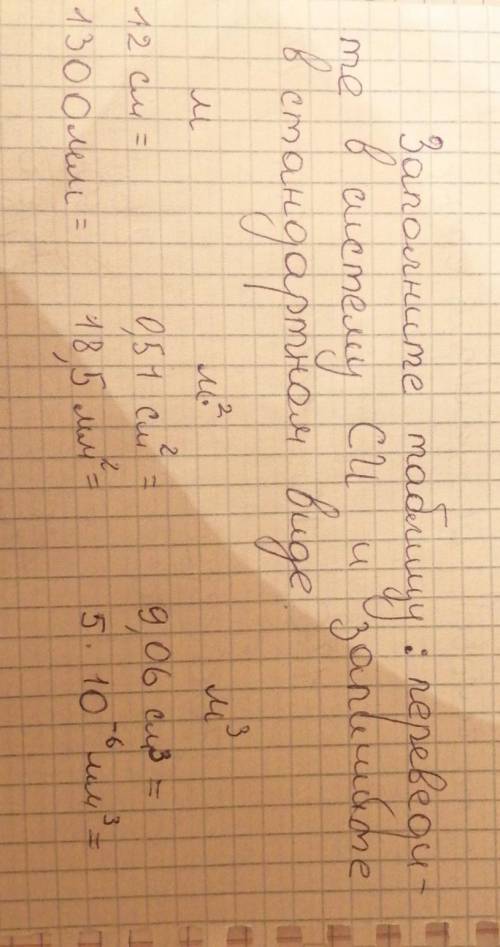 Заполните таблицу: переведи-
те в систему СИ и запишите
в стандартном виде.
м м² м³
12 см = 0,51 см² = 9,06 см³ =
1300 мм = 18,5 мм² = 5 · 10⁻⁶ мм³ =